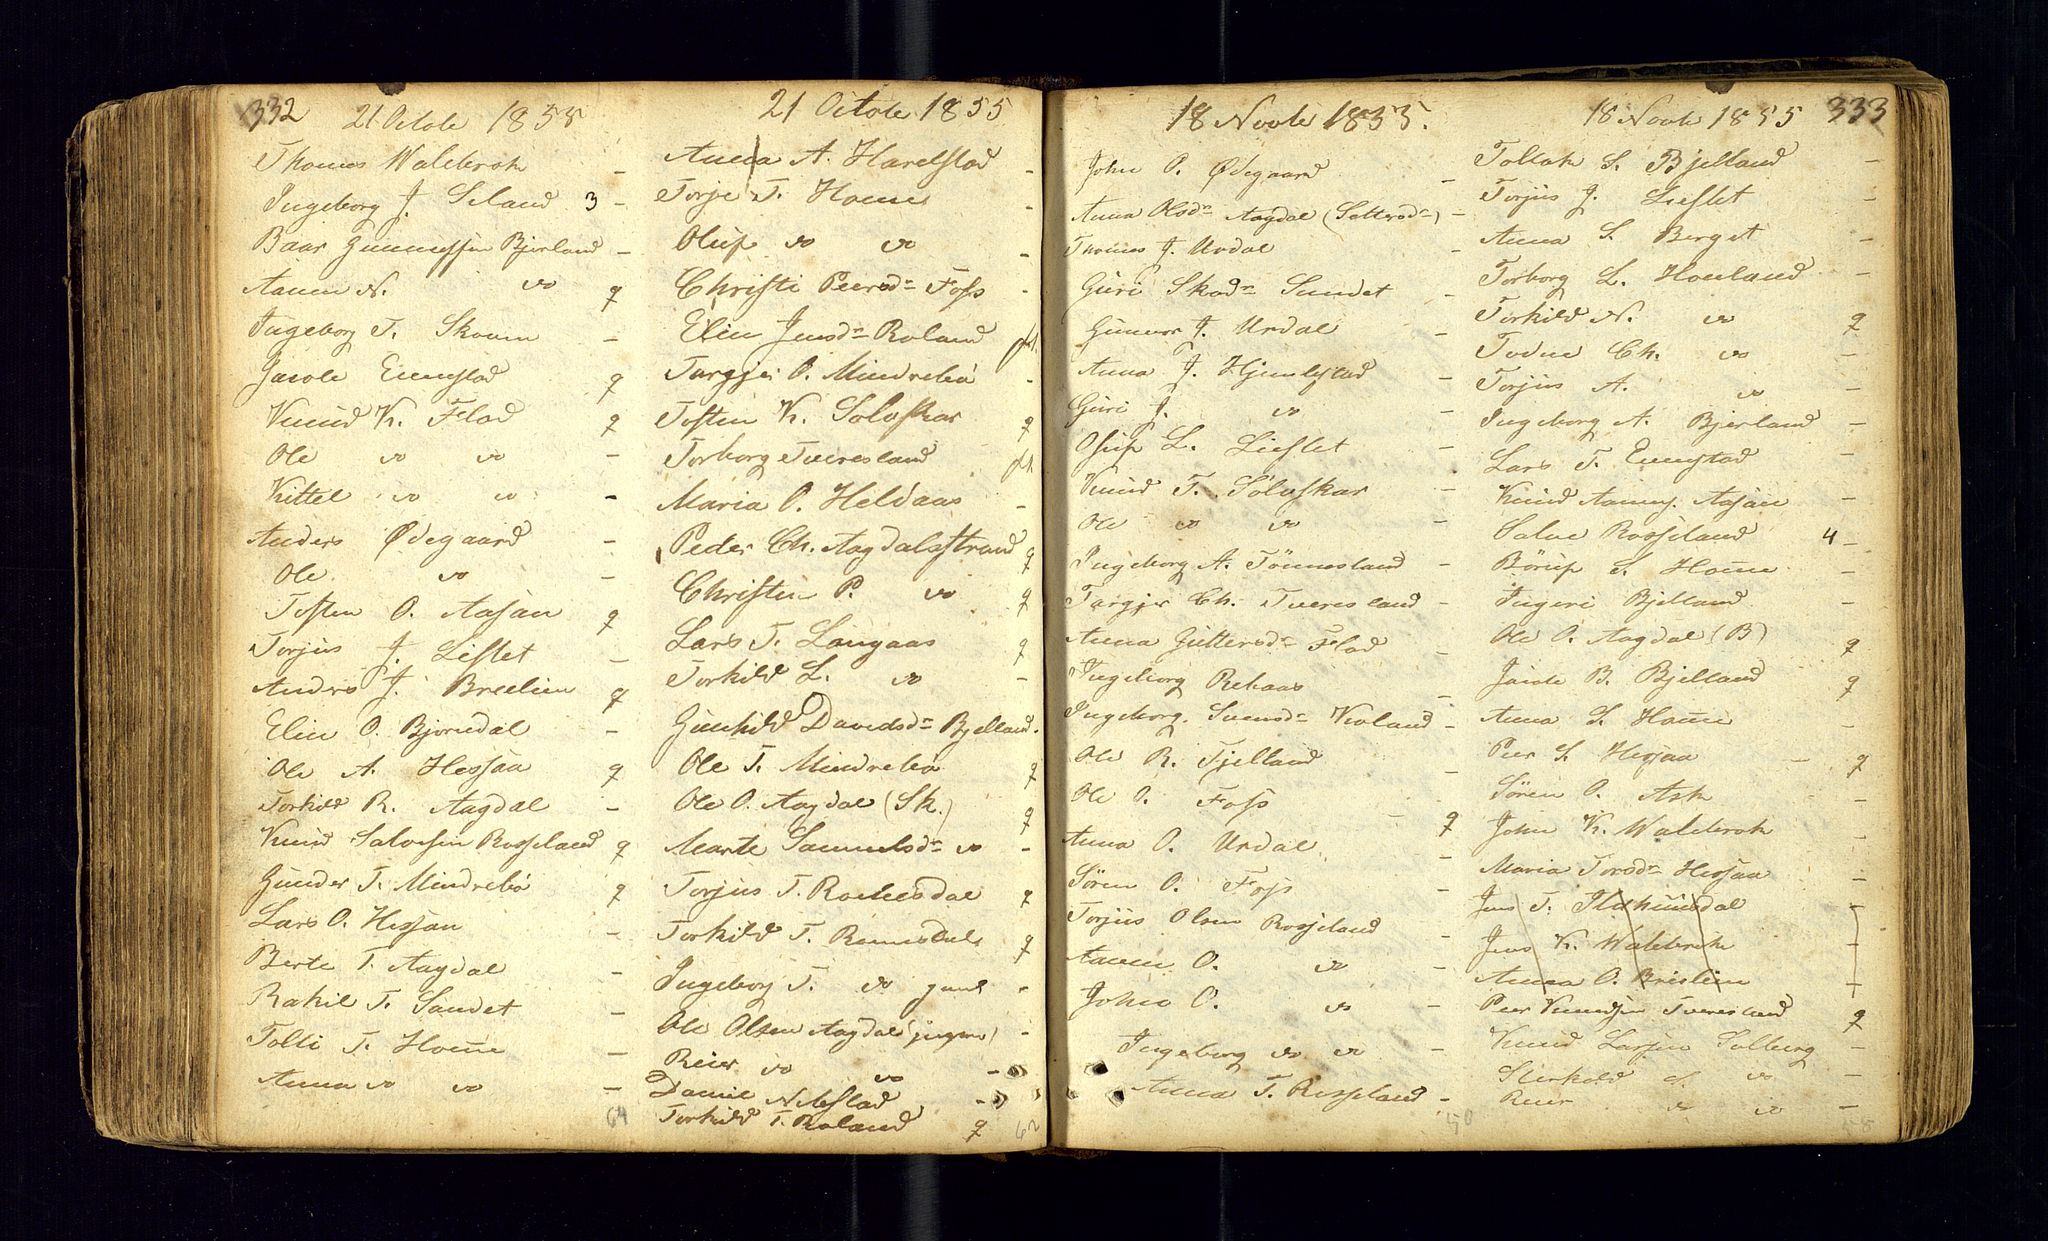 332
21 Octobr 1855
Thomas Waldbrok -
Ingeborg J. Seland 3 -
Baar Gunnufsen Bjerland -
Aanen N. do q
Ingeborg T. Skouen -
Jacob Eeenstad q
Knud K. Flad q
Ole do do -
Kittel do do -
Anders Ødegaard -
Ole do -
Tosten O. Aasan q
Torjus J. Lislet -
Andrs J. Breelien q
Elen O. Bjorndal -
Ole A. Hessaa q
Torkild R. Aagdal -
Knud Salvesen Rosseland q
Gunder T. Mindrebö q
Lars O. Hessaa -
Berte T. Aagdal -
Rakil T. Sandet -
Tolli T. Home -
Anna do do -
64
21 Octobr 1855
Anna A. Harestad -
Torje T. Home -
Oluf do do -
Christi Peersdr Foss -
Elen Jensdr Roland pk.
Targjer O. Mindrebö -
Tosten K. Soloskar q
Torborg Tveresland pk
Maria O. Heldaas -
Peder Ch. Aagdalsstrand q
Christen P. do q
Lars T. Langaas q
Torkild L. do -
Gunhild Davidsdr Bjelland -
Ole T. Mindrebö q
Ole O. Aagdal (Sk.) q
Marte Samuelsdr do -
Torjus T. Romesdal q
Torkild T. Romesdal q
Ingeborg T. do gml -
Ole Olsen Aagdal (yngre) -
Reier do do -
Daniel Nebstad -
Torkild T. Roland q
62
18 Novbr 1855.
John O. Ødegaard -
Anna Olsdr Aagdal (Solversdr) -
Thomas J. Urdal -
Guri Skodr Sundet -
Gunnar J. Urdal -
Anna J. Hjemlestad -
Guri J. do -
Osuf L. Lislet -
Knud T. Soloskar -
Ole do do -
Ingeborg A. Tönnesland -
Targjer Ch. Tveresland -
Anna Guttersdr Flad -
Ingeborg Rebaas -
Ingeborg Svensdr Voland -
Ole R. Fjelland -
Ole O. Foss - q
Anna O. Urdal -
Sören O. Foss -
Torjus Olsen Rosseland -
Aanen O. do -
John O. do -
Ingeborg do do -
Anna T. Rosseland -
50
18 Novbr 1855
333
Tollak S. Bjelland -
Torjus J. Lislet -
Anna S. Berget -
Torborg L. Houland -
Torkild N. do q
Todne Ch. do -
Torjus A. do -
Ingeborg A. Bjerland -
Lars T. Eeenstad -
Knud Aanens. Aasan -
Salve Rosseland 4 -
Böruf S. Home -
Ingeri Bjelland -
Ole O. Aagdal (B) q
Jacob B. Bjelland q
Anna S. Home -
Peer S. Hessaa - q
Sören O. Ask -
John K. Waldbrok -
Maria Torsdr Hessaa -
Jens K. Waldbrok -
Anna O. Breelien -
Peer Knudsen Tveresland q
Knud Larsen Solberg -
Sterkild L. do -
Reier do do -
58